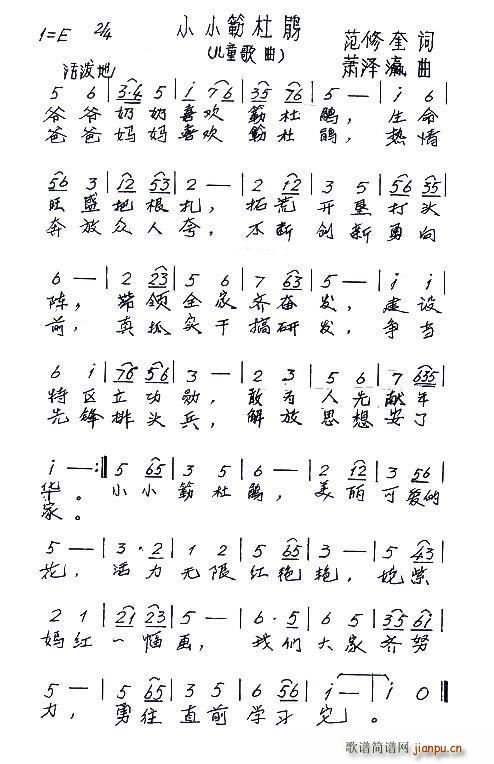 1=E 2/4 小小簕杜鹃 范修奎 词
(儿童歌曲) 萧泽瀛 曲
活泼地
5 6 | 3·4 5 | i 76 | 35 76 | 5 — | i 6 |
爷爷奶奶喜欢簕杜鹃，生命
爸爸妈妈喜欢簕杜鹃，热情
56 3 | 12 53 | 2 — | 2 12 | 3 5 | 56 35 |
旺盛把根扎，拓荒开垦打头
奔放众人夸，不断创新勇向
6 — | 2 23 | 5 6 | 7 63 | 5 — | i i |
阵，带领全家齐奋发，建设
前，真抓实干搞研发，争当
6 i | 76 56 | 3 — | 2 3 | 5 6 | 7 635 |
特区立功勋，敢为人先献年
先锋排头兵，解放思想安了
i — :| 5 65 | 3 5 | 3 — | 2 12 | 3 56 |
华。小小簕杜鹃，美丽可爱的
家。
5 — | 3·2 | 1 2 | 5 65 | 3 — | 5 43 |
花，活力无限红艳艳，姹紫
2 1 | 21 23 | 5 — | 6·5 | 6 5 | 35 61 |
嫣红一幅画，我们大家齐努
5 — | 5 65 | 3 5 | 6 56 | i — | i 0 ‖
力，勇往直前学习它。
歌谱简谱网
jianpu.cn